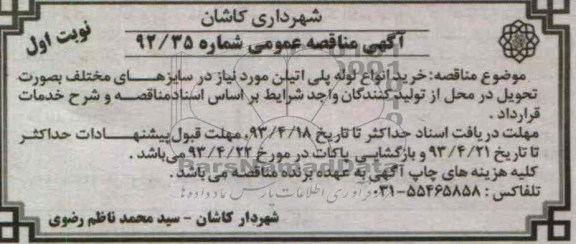 شهرداری کاشان
نوبت اول
آگهی مناقصه عمومی شماره ۹۲/۳۵
موضوع مناقصه: خرید انواع لوله پلی اتیلن مورد نیاز در سایزهای مختلف بصورت
تحویل در محل از تولید کنندگان واجد شرایط بر اساس اسناد مناقصه و شرح خدمات
قرارداد .
مهلت دریافت اسناد حداکثر تا تاریخ ۹۳/۴/۱۸، مهلت قبول پیشنهادات حداکثر
تا تاریخ ۹۳/۴/۲۱ و بازگشایی پاکات در مورخ ۹۳/۴/۲۲ می باشد .
کلیه هزینه های چاپ آگهی به عهده برنده مناقصه می باشد .
تلفاکس : ۵۵۴۶۵۸۵۸-۰۳۱
شهردار کاشان - سید محمد ناظم رضوی